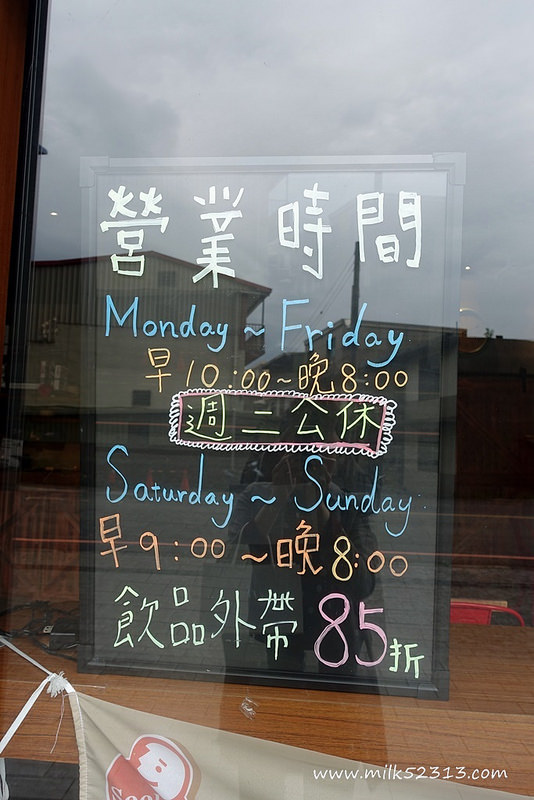 營業時間
Monday ~ Friday
早10:00~晚8:00
週二公休
Saturday ~ Sunday
早9:00~晚8:00
飲品外帶85折
www.milk52313.com